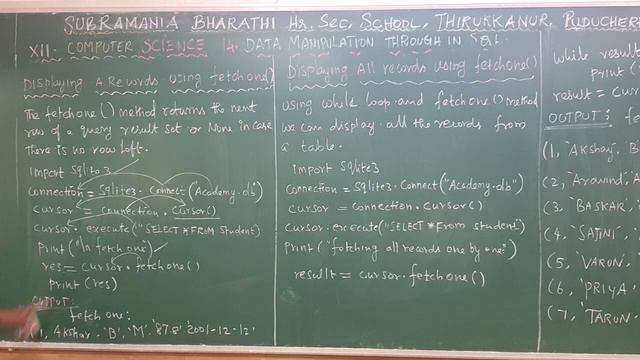 SUBRAMANIA BHARATHI Hr. Sec. SCHOOL, THIRUKKANUR, PUDUCHER
XII. COMPUTER SCIENCE 14. DATA MANIPULATION THROUGH IN SQL.
Displaying A Records using fetchone()
The fetchone() method returns the next
row of a query result set or None in case
there is no row left.
import Sqlite3
Connection = Sqlite3. Connect ("Academy.db")
cursor = connection. cursor()
cursor. execute("SELECT * FROM student")
Print("\n fetch one")
res = cursor. fetchone()
Print (res)
OUTPUT:
fetch one:
(1, Akshay, 'B', 'M', '87.8' 2001-12-12'
Displaying All records using fetchone()
using while loop and fetchone() method
we can display all the records from
a table.
import Sqlite3
Connection = Sqlite3. Connect("Academy.db")
cursor = connection. cursor()
cursor. execute("SELECT * From student")
Print("fetching all records one by one:")
result = cursor. fetchone()
while resul
Print (
result = Cur
OUTPUT: fe
(1, 'Akshay', 'B
(2, 'Aravind', A
(3, 'BASKAR',
(4, 'SAJINI',
(5, 'VARUN',
(6, 'PRIYA',
(7, 'TARUN